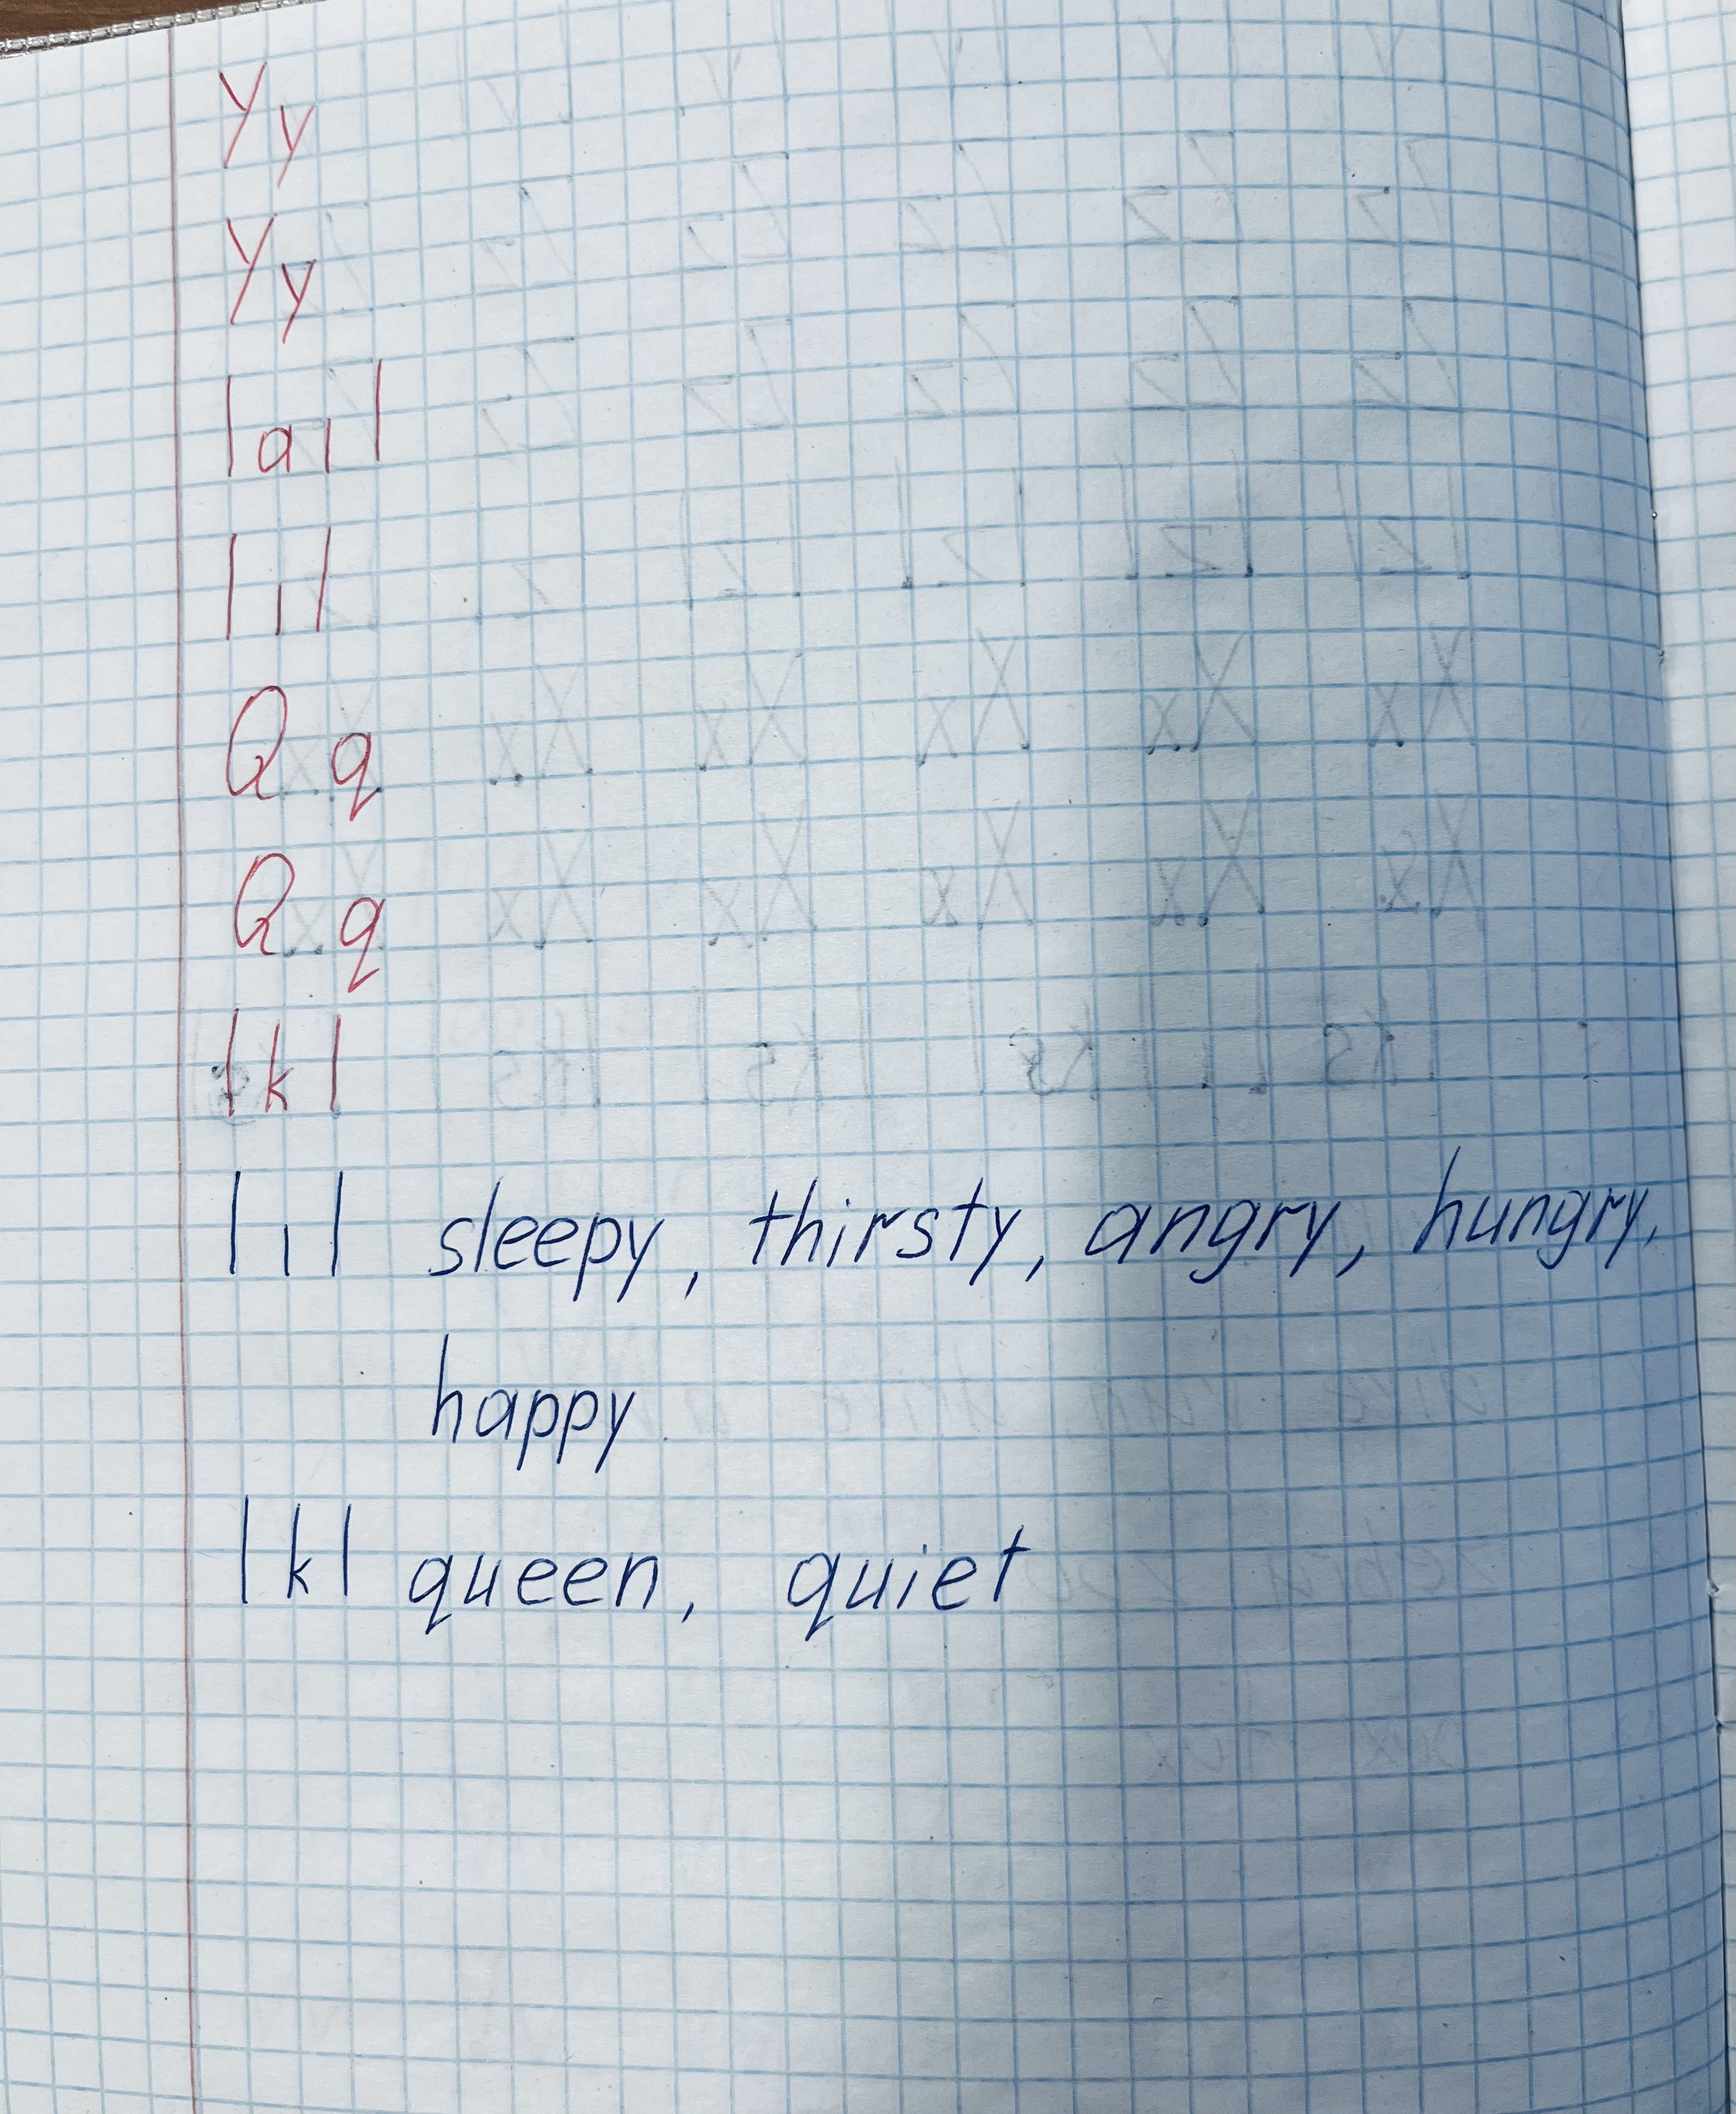 Yy
Yy
|aı|
|ı|
Q q
Q q
|k|
|ı| sleepy, thirsty, angry, hungry,
happy
|k| queen, quiet